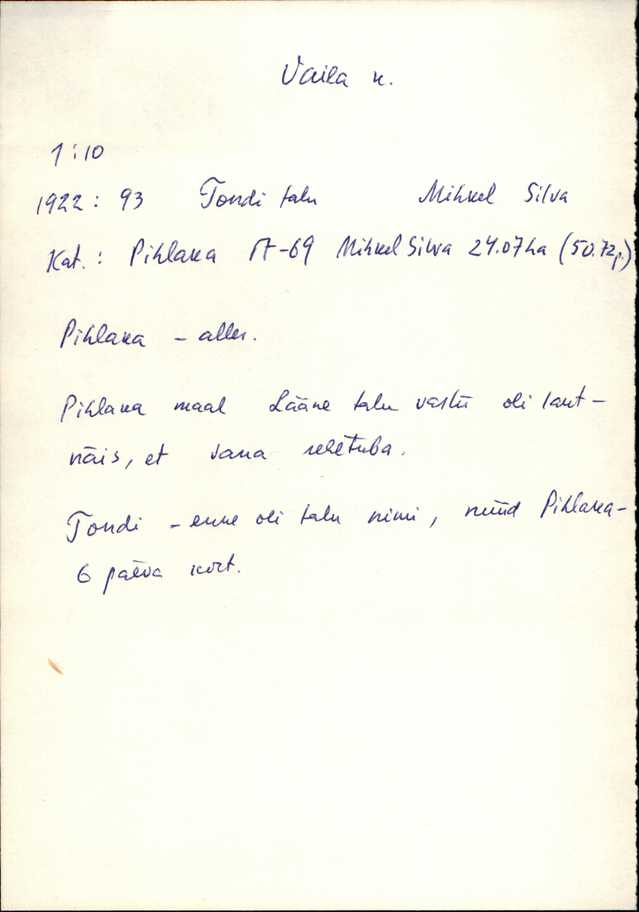 Vaila k.
1:10
1922: 93 Tondi talu Mihkel Silva
Kat.: Pihlaka A-69 Mihkel Silva 24.07ha (50.72p.)
Pihlaka - alles.
Pihlaka maal Lääne talu vastu oli laut-
näis, et vana rehetuba.
Tondi - enne oli talu nimi, nüüd Pihlaka-
6 päeva koht.